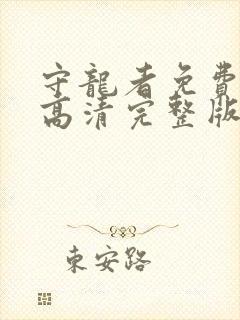 守龍者免費
高清完整版
東安路